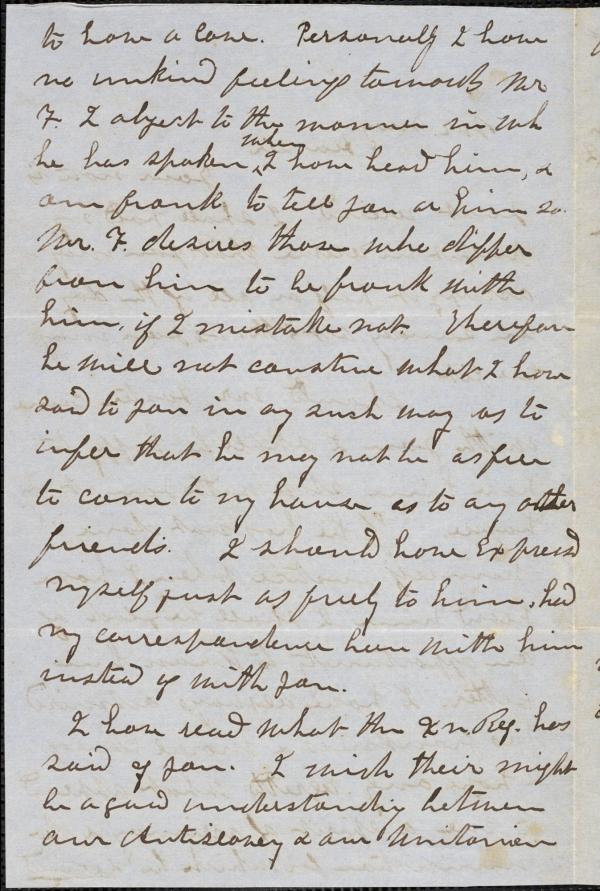 to have a care. Personally I have
no unkind feelings towards Mr
F. I object to the manner in wh
he has spoken, when I have head him, &
am frank to tell you or him so.
Mr. F. desires those who differ
from him to be frank with
him, if I mistake not. Therefore
he will not construe what I have
said to you in any such way as to
infer that he may not be as free
to come to my house as to any other
friends. I should have Expressd
myself just as freely to him, had
my correspondence been with him
instead of with you.
I have read what the Xn Reg. has
said of you. I wish their might
be a good understanding between
our Antislavery & our Unitarian